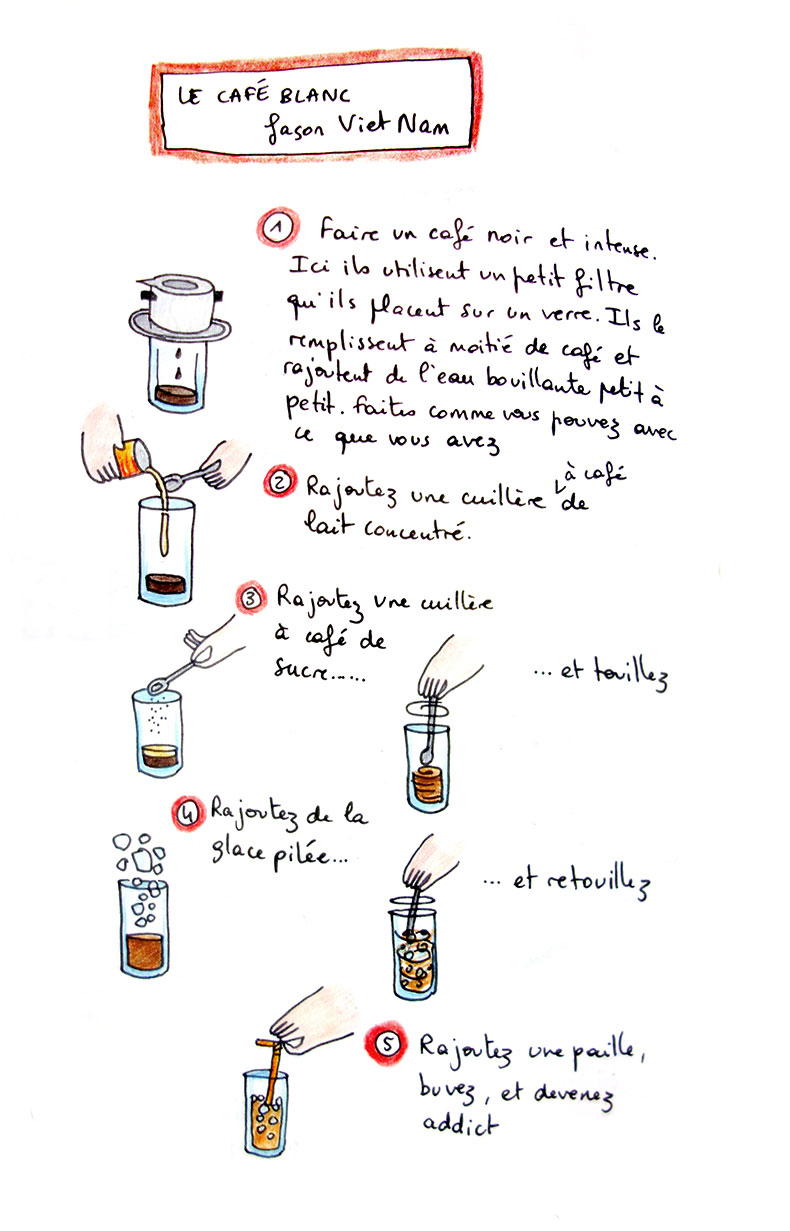 LE CAFÉ BLANC
façon Viet Nam
1 Faire un café noir et intense.
Ici ils utilisent un petit filtre
qu'ils placent sur un verre. Ils le
remplissent à moitié de café et
rajoutent de l'eau bouillante petit à
petit. faites comme vous pouvez avec
ce que vous avez
2 Rajoutez une cuillère à café de
lait concentré.
3 Rajoutez une cuillère
à café de
sucre......
... et touillez
4 Rajoutez de la
glace pilée...
... et retouillez
5 Rajoutez une paille,
buvez, et devenez
addict